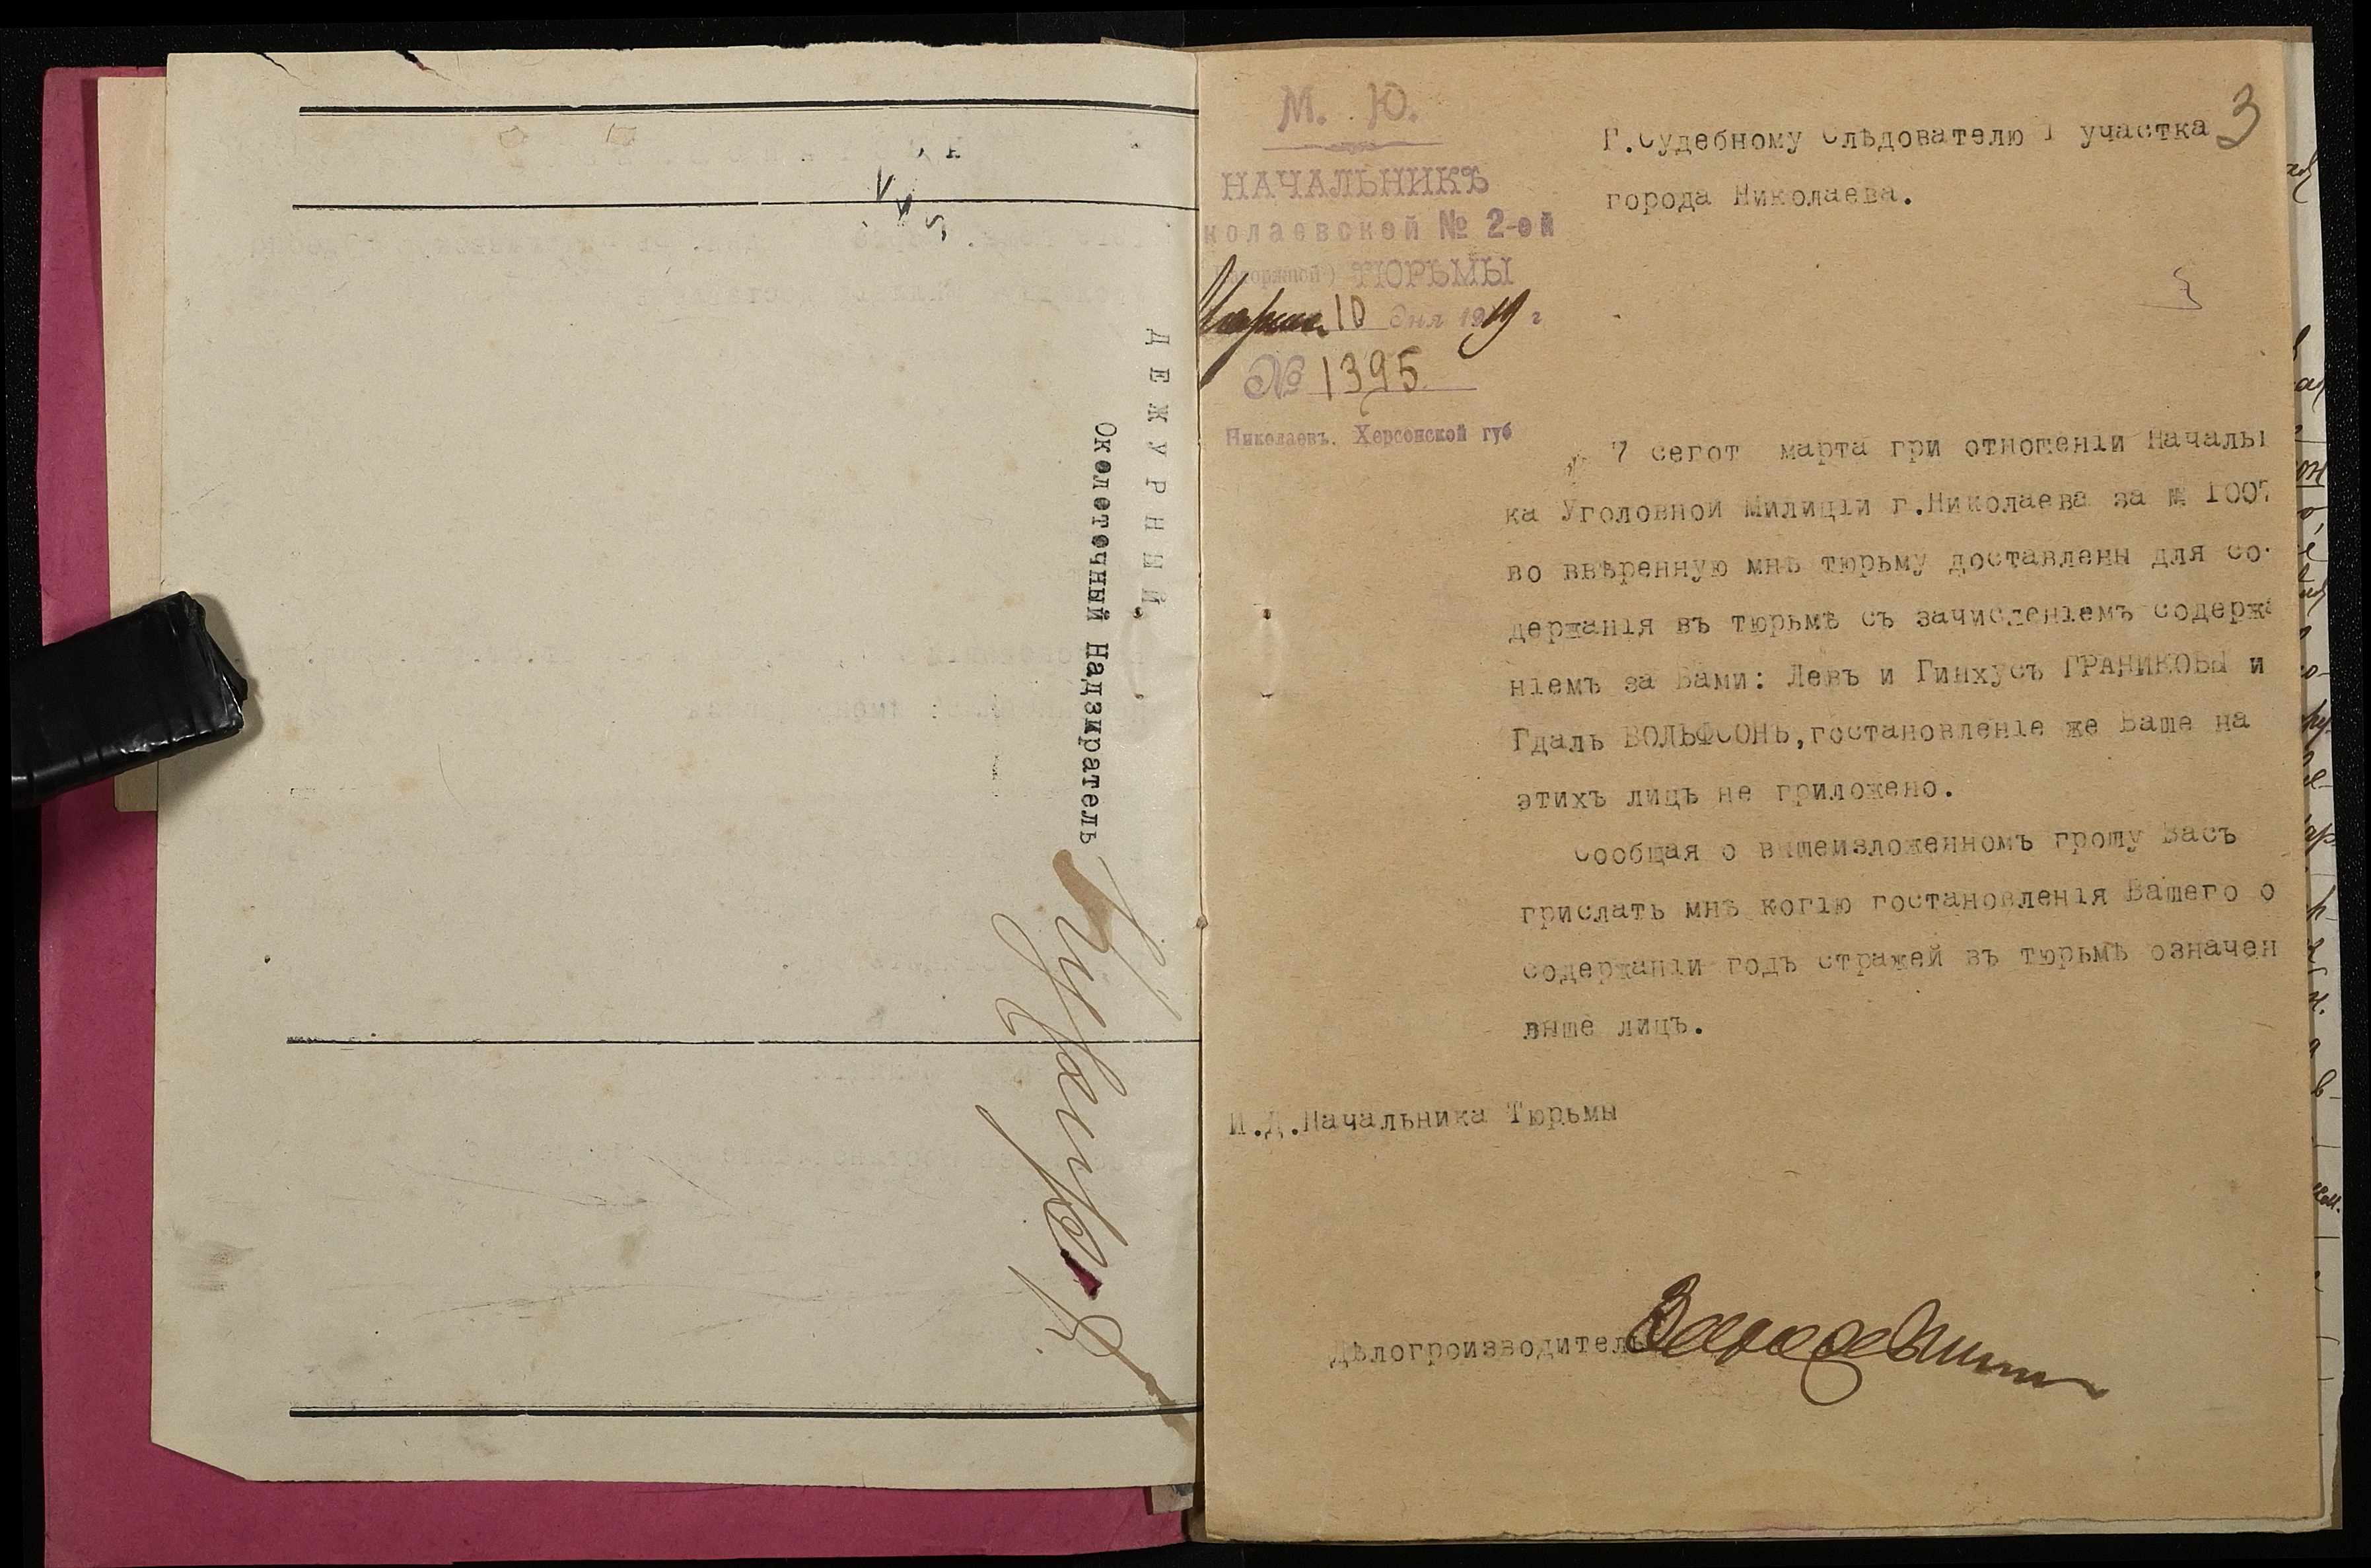 ДЕЖУРНЫЙ
Околоточный Надзиратель
М. Ю.
НАЧАЛЬНИКЪ
колаевской № 2-ой
ТЮРЬМЫ
Марта 10 дня 1919 г
№ 1395
Николаевъ. Херсонской губ
3
Г.Судебному Слѣдователю I участка
города Николаева.
3
7 сегот марта гри отношеніи Началы
ка Уголовной Милиціи г.Николаева за № 1007
во ввѣренную мнѣ тюрьму доставлены для со-
держанія въ тюрьмѣ съ зачисленіемъ содержа
ніемъ за Вами: Левъ и Гинхусъ ГРАНИКОВЫ и
Гдаль ВОЛЬФСОНЬ,гостановленіе же Ваше на
этихъ лицъ не гриложено.
Сообщая о вышеизложенномъ грошу Васъ
грислать мнѣ когію гостановленія Вашего о
содержаніи годъ стражей въ тюрьмѣ означен
выше лицъ.
И.Д.Начальника Тюрьмы
Дѣлогроизводитель